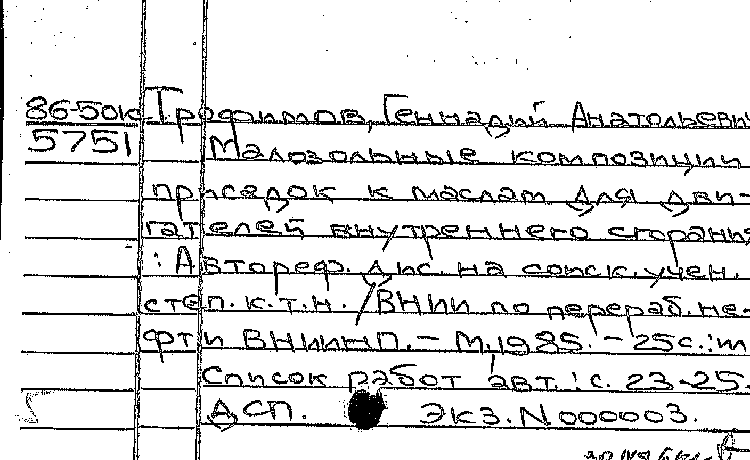 86-50к Трофимов, Геннадий Анатольевич
5751 Малозольные композиции
присадок к маслам для дви-
гателей внутреннего сгорания
: Автореф. дис. на соиск. учен.
степ. к.т.н. / ВНИИ по перераб. не-
фти ВНИИНП. - М, 1985. - 25 с.:
Список работ авт.: с. 23-25.
ДСП. Экз. N 000003.